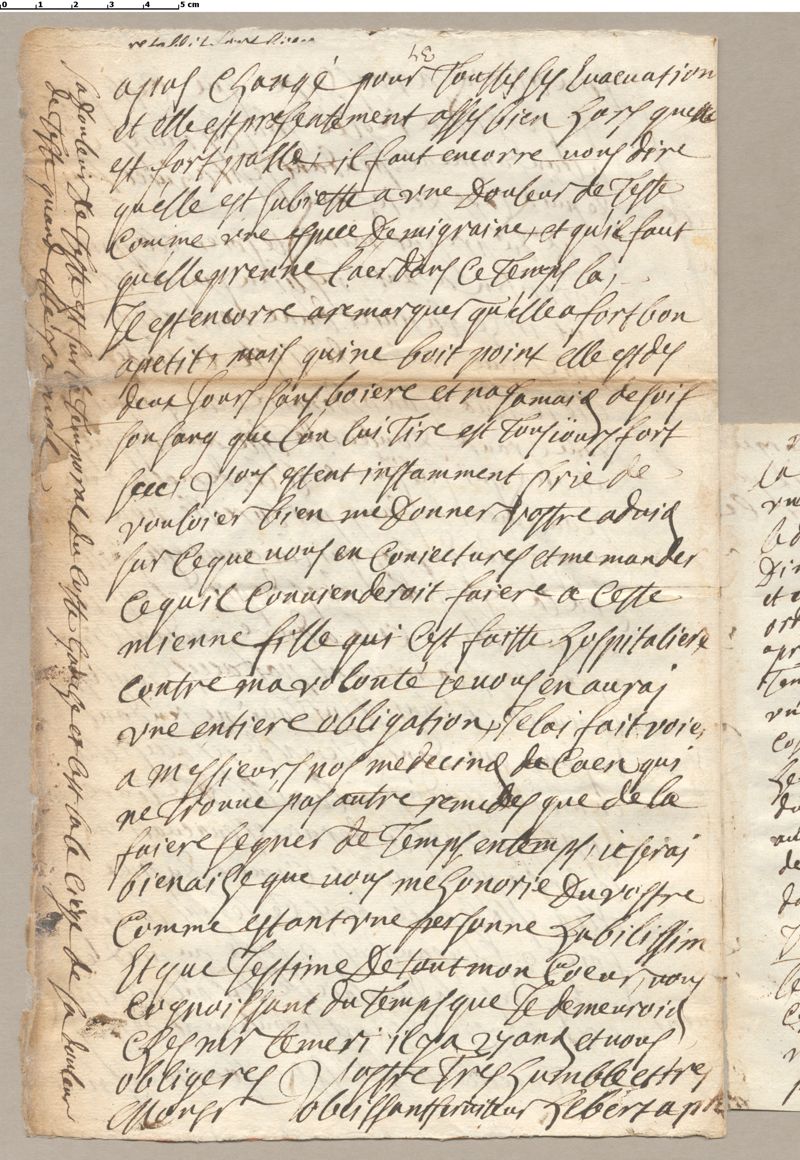 34
apas Changé pour Touttes ses Evacuation
et elle est presentement asses bien hors quelle
est fort palle, il faut encorre vous dire
quelle est subiette a vne Douleur de Teste
Comme vne espece De migraine, et quil faut
quelle prenne laer dans Ce Temps la,
Il est encorre a remarquer quelle a fort bon
apetit, mais qui ne boit point elle est des
deux Jours sans boiere et na Jamais de soif
son sang que lon lui Tire est Tousiours fort
secc, Vous estent instamment prie de
vouloier bien me Donner Vostre aduis
sur Ceque vous en Coniectures et me mander
Cequil Conuienderoit faiere a Cette
mienne fille qui Cest faitte hospitaliere
Contre ma volonté ie vous en aurai
vne entiere obligation, Je lai fait voier
a messieurs nos medecins de Caen qui
ne Trouue pas autre remedes que de la
faiere segner de Temps en temps, ie serai
bienaise que vous me honorie Du vostre
Comme estant vne personne habilissim
Et que Jestime De tout mon Coeur, vous
Cognoissant du Temps que Je demeurois
Ches mr Lemeri il y a 27 ans et vous
obligeres Vostre Tres humble et tres
obeissant seruiteur hebert ap
sa douleur de Teste est sur le Temporal du Costé Gauche et Cest la le siege de sa douleur
de Teste quand elle y a mal